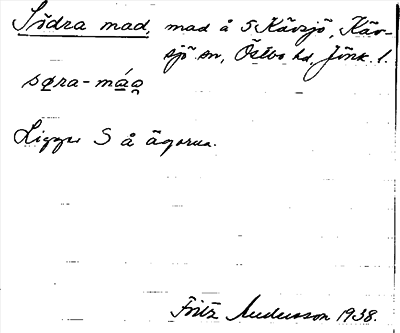 Södra mad, mad å S Kävsjö, Käv-
sjö sn, Östbo hd, Jönk. l.
Ligger S å ägorna.
Fritz Andersson 1938.